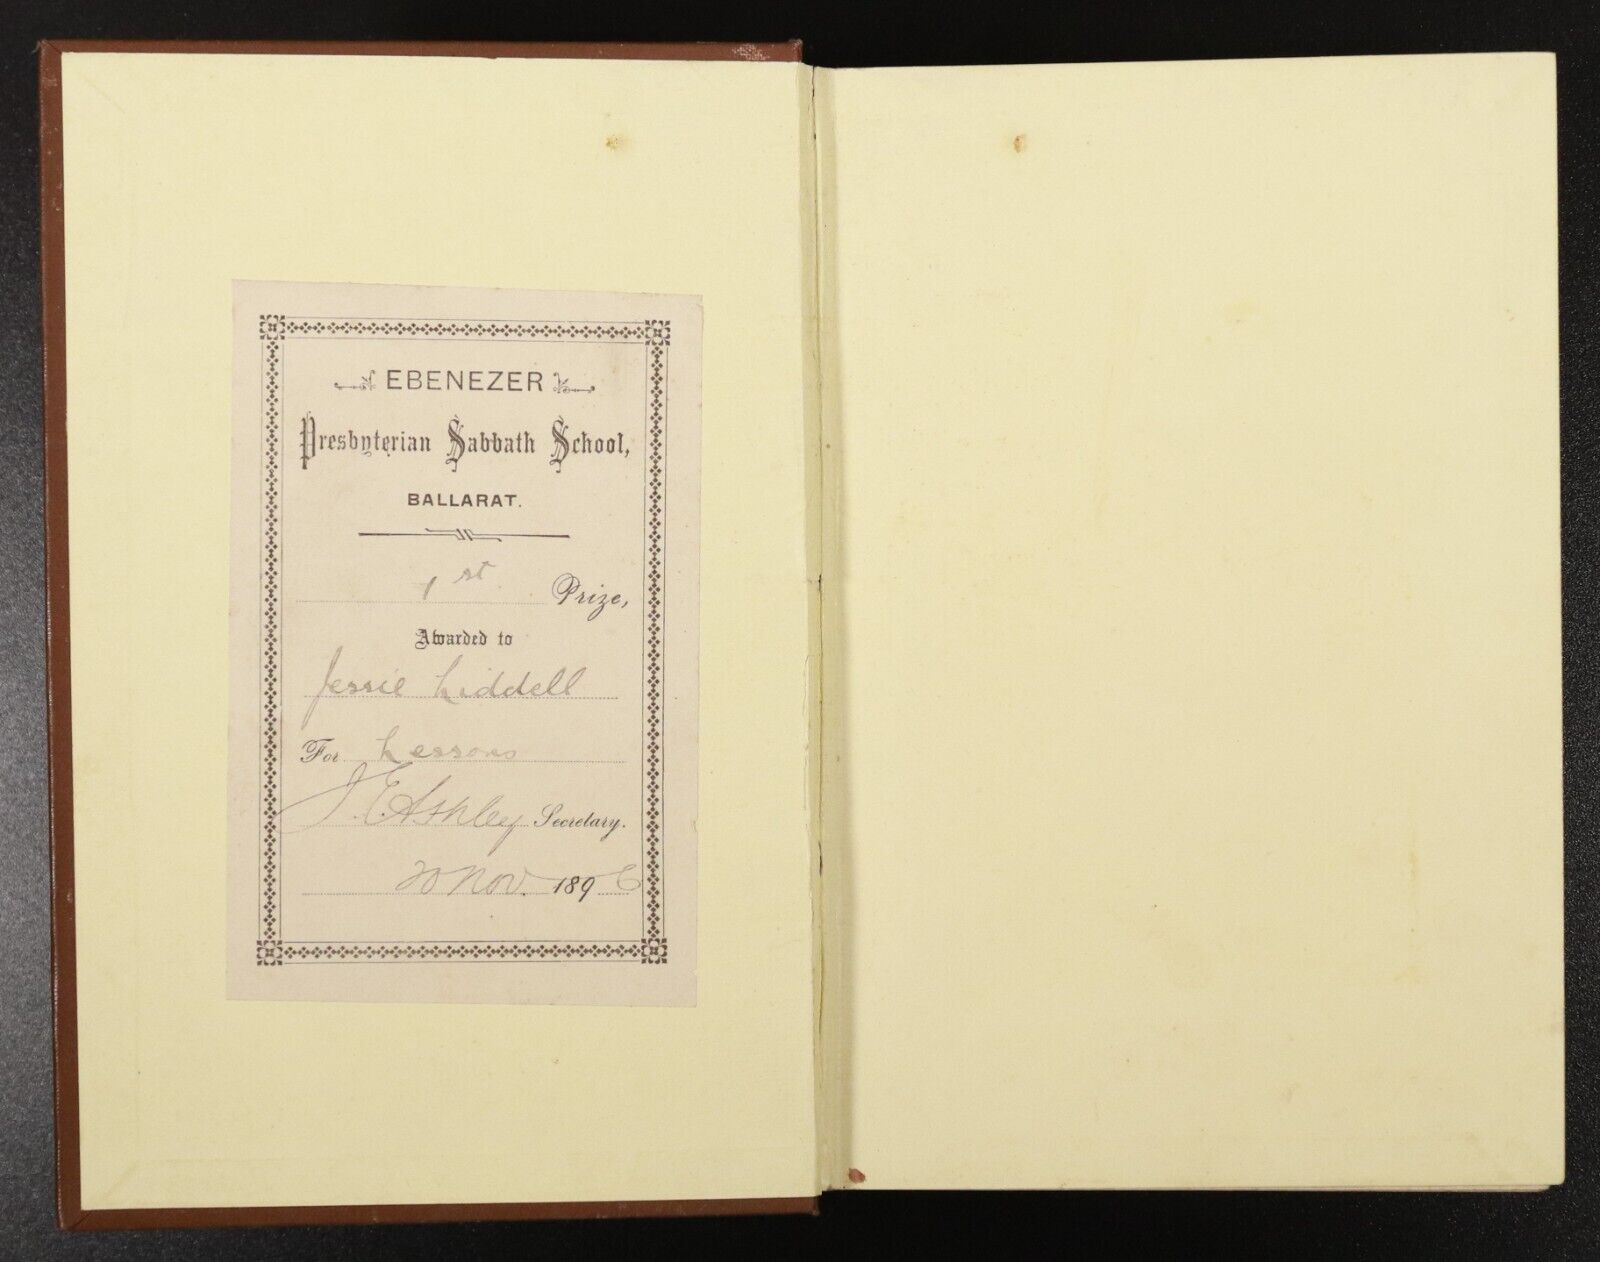 EBENEZER
Presbyterian Sabbath School,
BALLARAT.
1st Prize,
Awarded to
Jessie Liddell
For Lessons
J. E. Ashley Secretary.
20 Nov. 1896